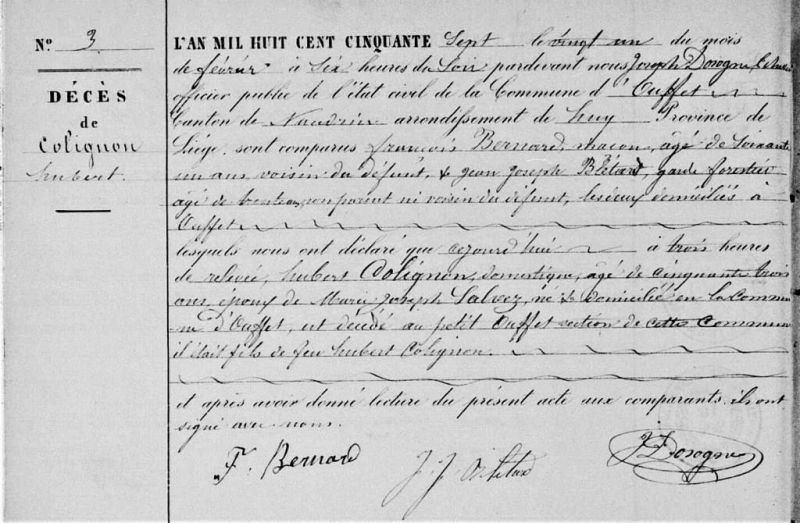 N° 3
DÉCÈS
de
Colignon
hubert.
L'AN MIL HUIT CENT CINQUANTE Sept le vingt un du mois
de février à Six heures du Soir pardevant nous Joseph Dosogne,
officier public de l'état civil de la Commune d'Ouffet
Canton de Nandrin arrondissement de huy Province de
Liége. sont comparus françois Bernard, maçon, âgé de Soixante
un ans, voisin du défunt, & Jean Joseph garde forestier
âgé de ans, non parent ni voisin du défunt, les deux domiciliés à
Ouffet
lesquels nous ont déclaré que cejourd'hui à trois heures
de relevée, hubert Colignon, domestique, âgé de cinquante trois
ans, epoux de Marie Joseph Salvez, né & domicilié en la Commu
ne d'Ouffet, est décédé au petit Ouffet section de cette Commune
il était fils de feu hubert Colignon.
et après avoir donné lecture du présent acte aux comparants, ils ont
signé avec nous.
F. Bernard
J. J.
J Dosogne